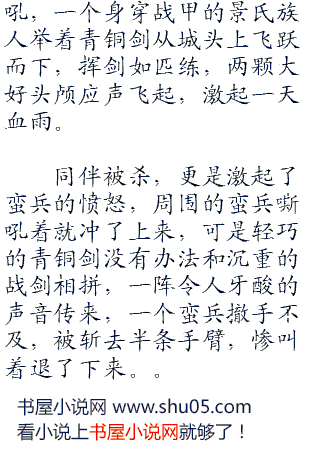 吼，一个身穿战甲的景氏族
人举着青铜剑从城头上飞跃
而下，挥剑如匹练，两颗大
好头颅应声飞起，激起一天
血雨。
同伴被杀，更是激起了
蛮兵的愤怒，周围的蛮兵嘶
吼着就冲了上来，可是轻巧
的青铜剑没有办法和沉重的
战剑相拼，一阵令人牙酸的
声音传来，一个蛮兵撤手不
及，被斩去半条手臂，惨叫
着退了下来。。
书屋小说网 www.shu05.com
看小说上书屋小说网就够了！